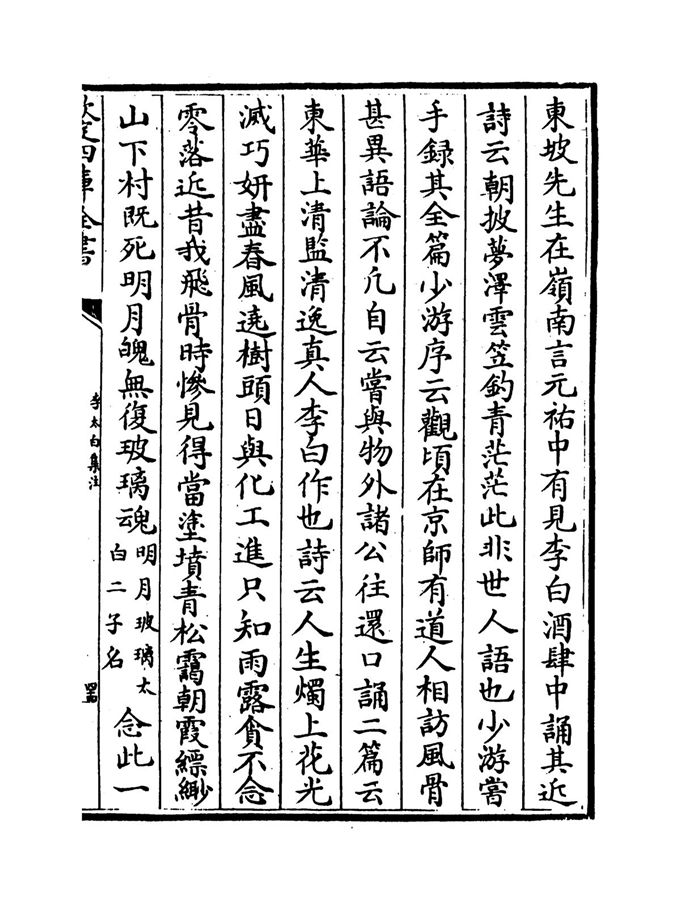 東坡先生在嶺南言元祐中有見李白酒肆中誦其近
詩云朝披夢澤雲笠釣青茫茫此非世人語也少游嘗
手録其全篇少游序云觀頃在京師有道人相訪風骨
甚異語論不凡自云嘗與物外諸公往還口誦二篇云
東華上清監清逸真人李白作也詩云人生燭上花光
滅巧妍盡春風遶樹頭日與化工進只知雨露貪不念
零落近昔我飛骨時慘見得當塗墳青松靄朝霞縹緲
山下村既死明月魄無復玻璃魂明月玻璃太白二子名念此一
欽定四庫全書
李太白集注